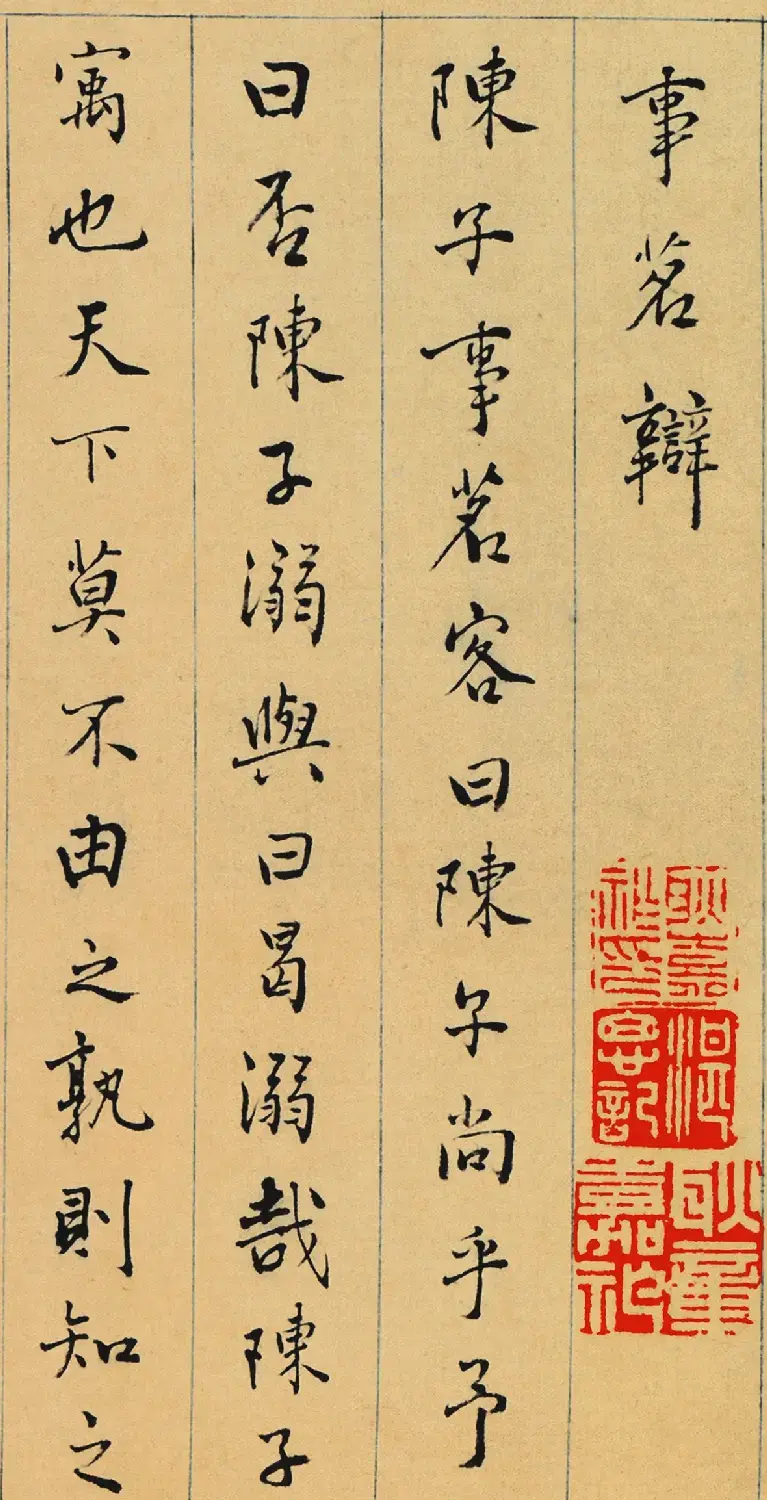 事茗辯
陳子事茗客曰陳子尚乎予
曰否陳子溺與曰曷溺哉陳子
寓也天下莫不由之孰則知之
耿嘉祚印